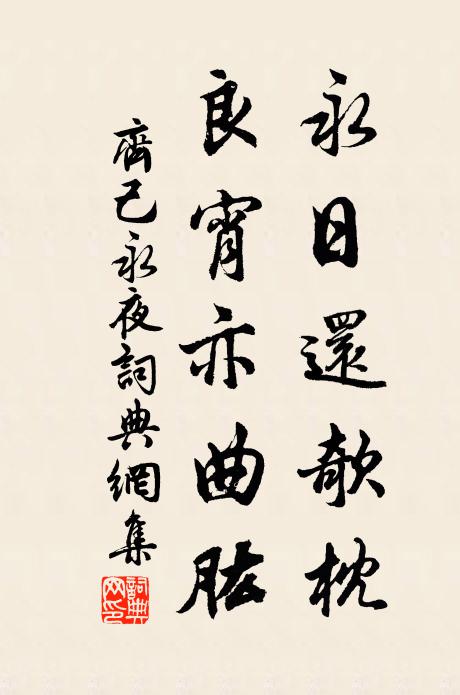 永日還欹枕
良宵亦曲肱
齊己永夜詞典網集
詞典网印